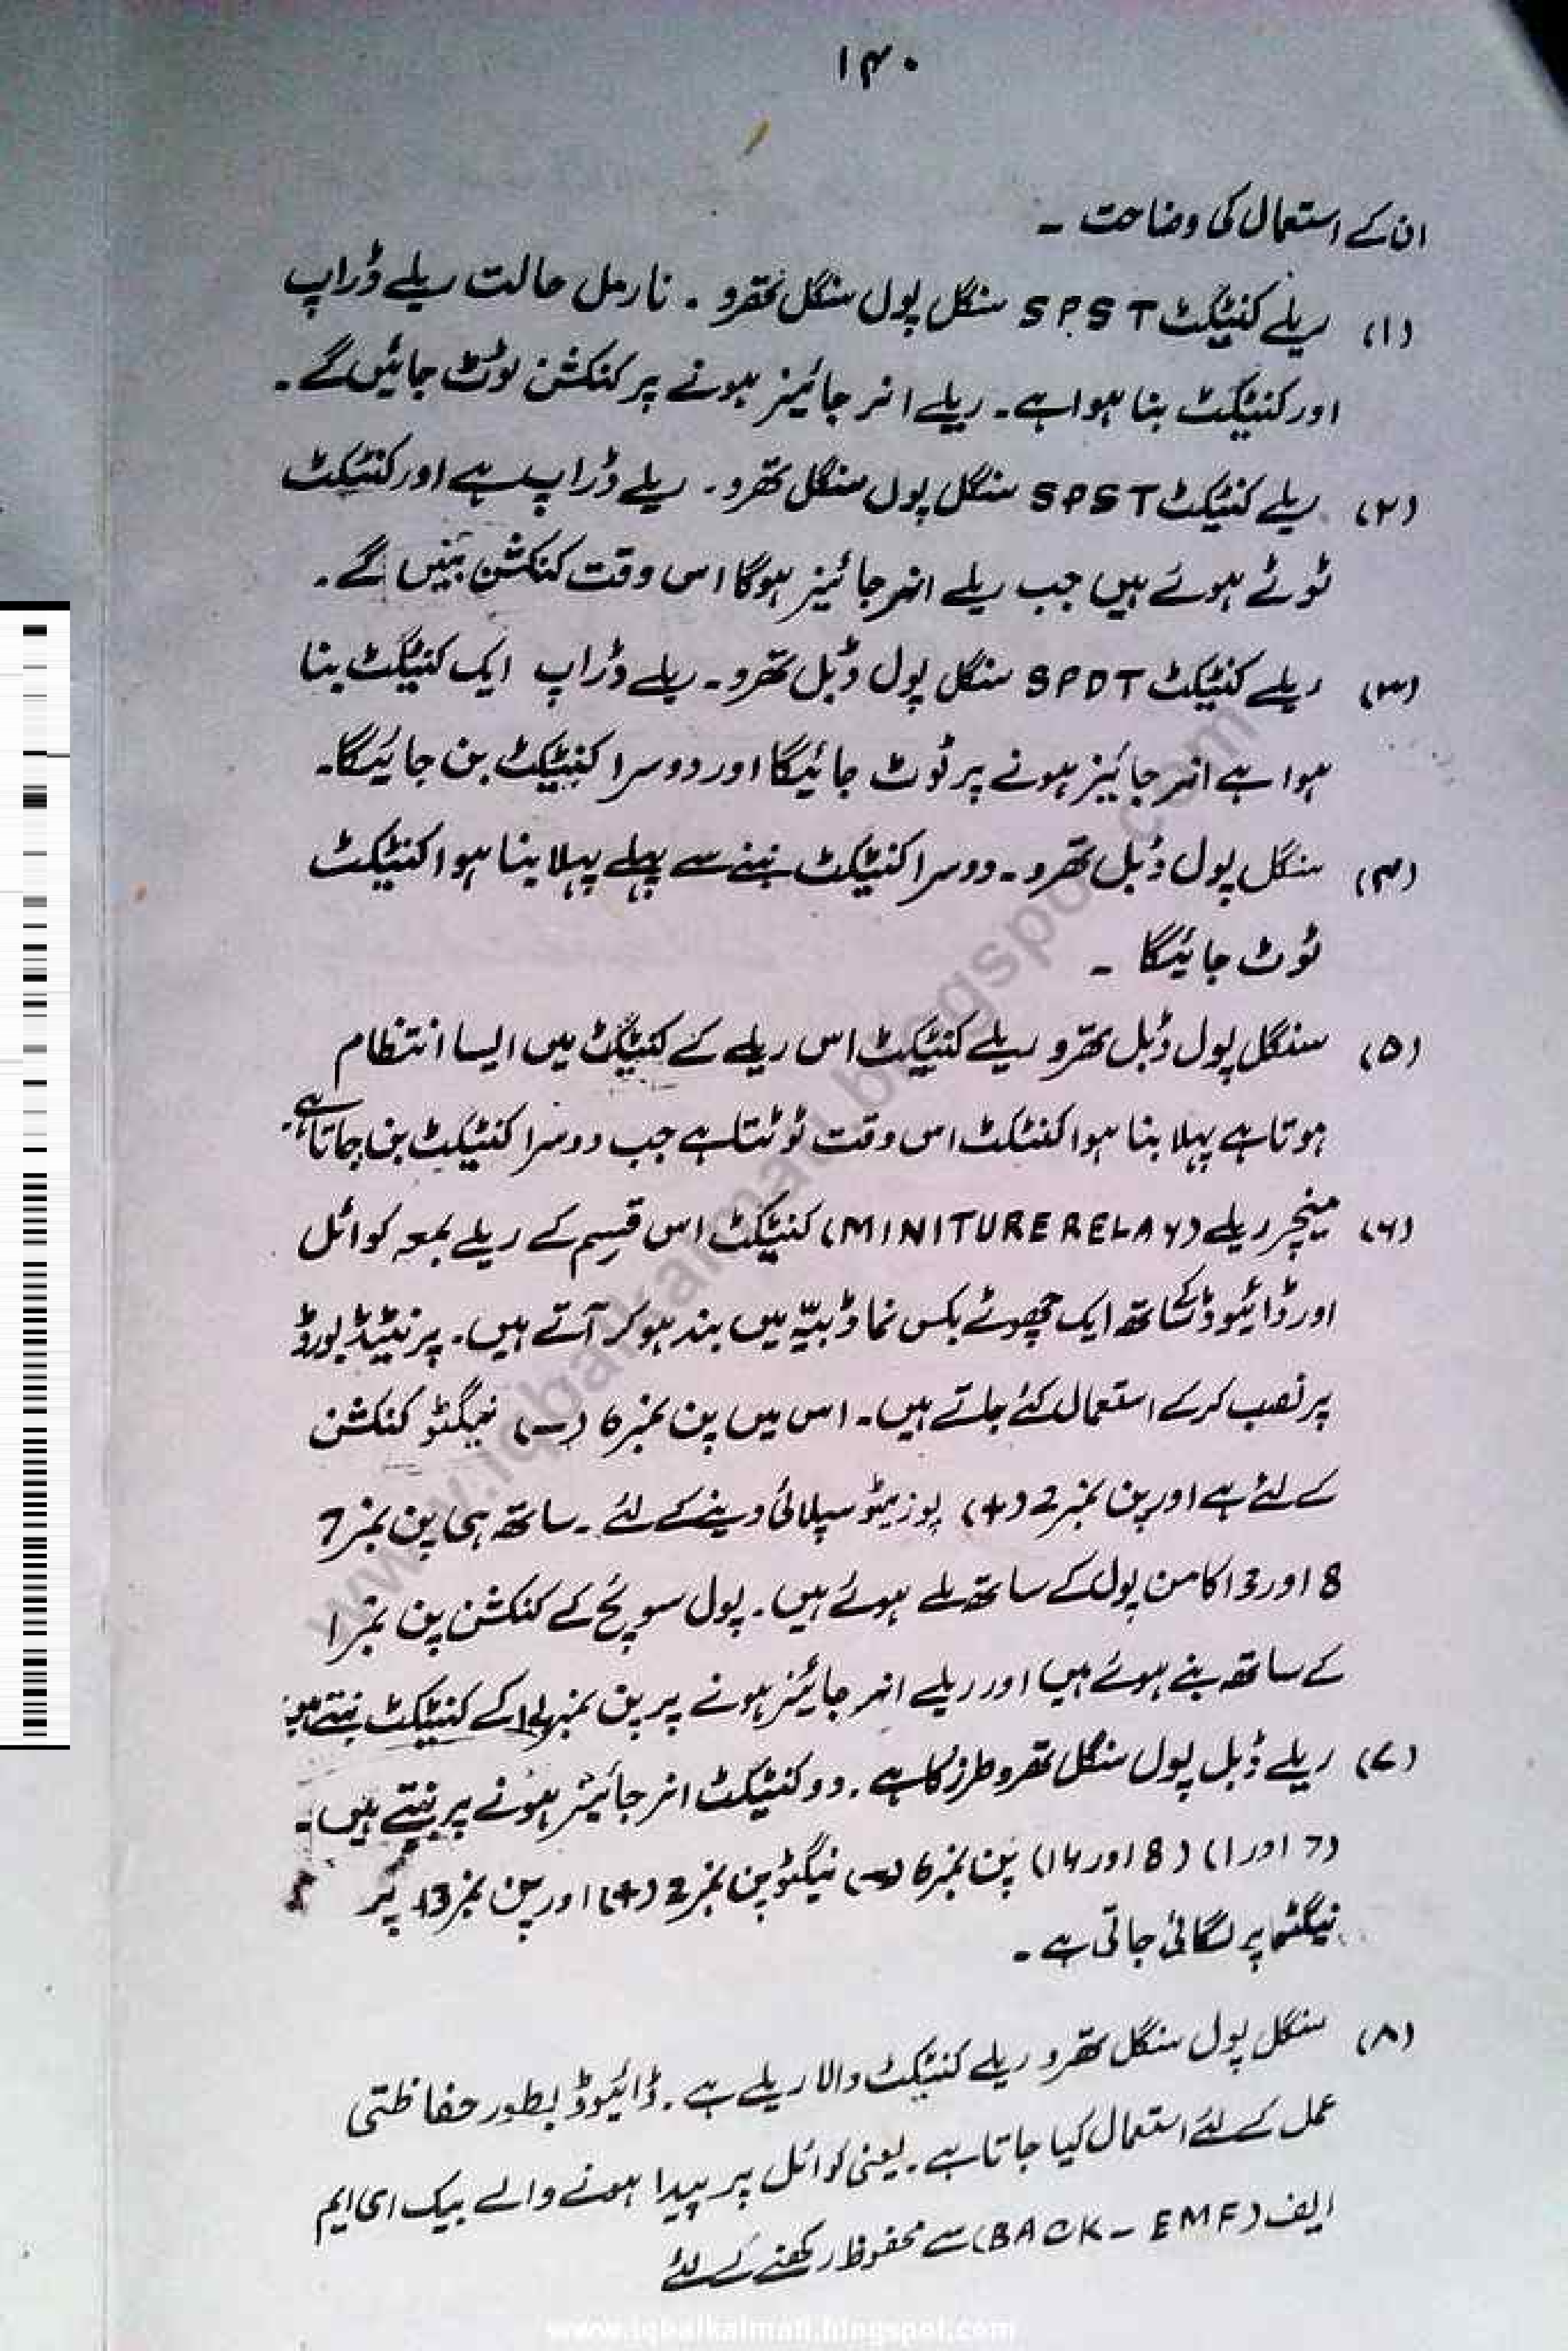 ۱۴۰
ان کے استعمال کی وضاحت ۔
(۱) ریلے کنٹیکٹ SPST سنگل پول سنگل تھرو ۔ نارمل حالت ریلے ڈراپ
اور کنٹیکٹ بنا ہوا ہے ۔ ریلے انرجائیز ہونے پر کنکشن ٹوٹ جائیں گے ۔
(۲) ریلے کنٹیکٹ SPST سنگل پول سنگل تھرو ۔ ریلے ڈراپ ہے اور کنٹیکٹ
ٹوٹے ہوئے ہیں جب ریلے انرجائیز ہوگا اس وقت کنکشن بنیں گے ۔
(۳) ریلے کنٹیکٹ SPDT سنگل پول ڈبل تھرو ۔ ریلے ڈراپ ایک کنٹیکٹ بنا
ہوا ہے انرجائیز ہونے پر ٹوٹ جائیگا اور دوسرا کنٹیکٹ بن جائیگا ۔
(۴) سنگل پول ڈبل تھرو ۔ دوسرا کنٹیکٹ بننے سے پہلے پہلا بنا ہوا کنٹیکٹ
ٹوٹ جائیگا ۔
(۵) سنگل پول ڈبل تھرو ریلے کنٹیکٹ اس ریلے کے کنٹیکٹ میں ایسا انتظام
ہوتا ہے پہلا بنا ہوا کنٹکٹ اس وقت ٹوٹتا ہے جب دوسرا کنٹیکٹ بن جاتا ہے ۔
(۶) مینچر ریلے (MINITURE RELAY) کنٹیکٹ اس قسم کے ریلے بمعہ کوائل
اور ڈائیوڈ کے ساتھ ایک چھوٹے بکس نما ڈبیہ میں بند ہو کر آتے ہیں ۔ پرنٹیڈ بورڈ
پر نصب کر کے استعمال کئے جاتے ہیں ۔ اس میں پن نمبر 6 (-) نیگٹو کنکشن
کے لئے ہے اور پن نمبر 2 (+) پوزیٹو سپلائی دینے کے لئے ۔ ساتھ ہی پن نمبر 7
8 اور 13 کامن پول کے ساتھ ملے ہوئے ہیں ۔ پول سوئچ کے کنکشن پن نمبر 1
کے ساتھ بنے ہوئے ہیں اور ریلے انرجائیز ہونے پر پن نمبر کے کنٹیکٹ بنتے ہیں
(۷) ریلے ڈبل پول سنگل تھرو طرز کا ہے ۔ دو کنٹیکٹ انرجائیز ہونے پر بنتے ہیں ۔
(7 اور 1) (8 اور 14) پن نمبر 6 (-) نیگٹو پن نمبر 2 (+) اور پن نمبر 13 پر
نیگٹو پر لگائی جاتی ہے ۔
(۸) سنگل پول سنگل تھرو ریلے کنٹیکٹ والا ریلے ہے ۔ ڈائیوڈ بطور حفاظتی
عمل کے لئے استعمال کیا جاتا ہے ۔ یعنی کوائل پر پیدا ہونے والے بیک ای ایم
ایف (BACK - EMF) سے محفوظ رکھنے کے لئے
www.iqbalkalmati.blogspot.com
www.iqbalkalmati.blogspot.com